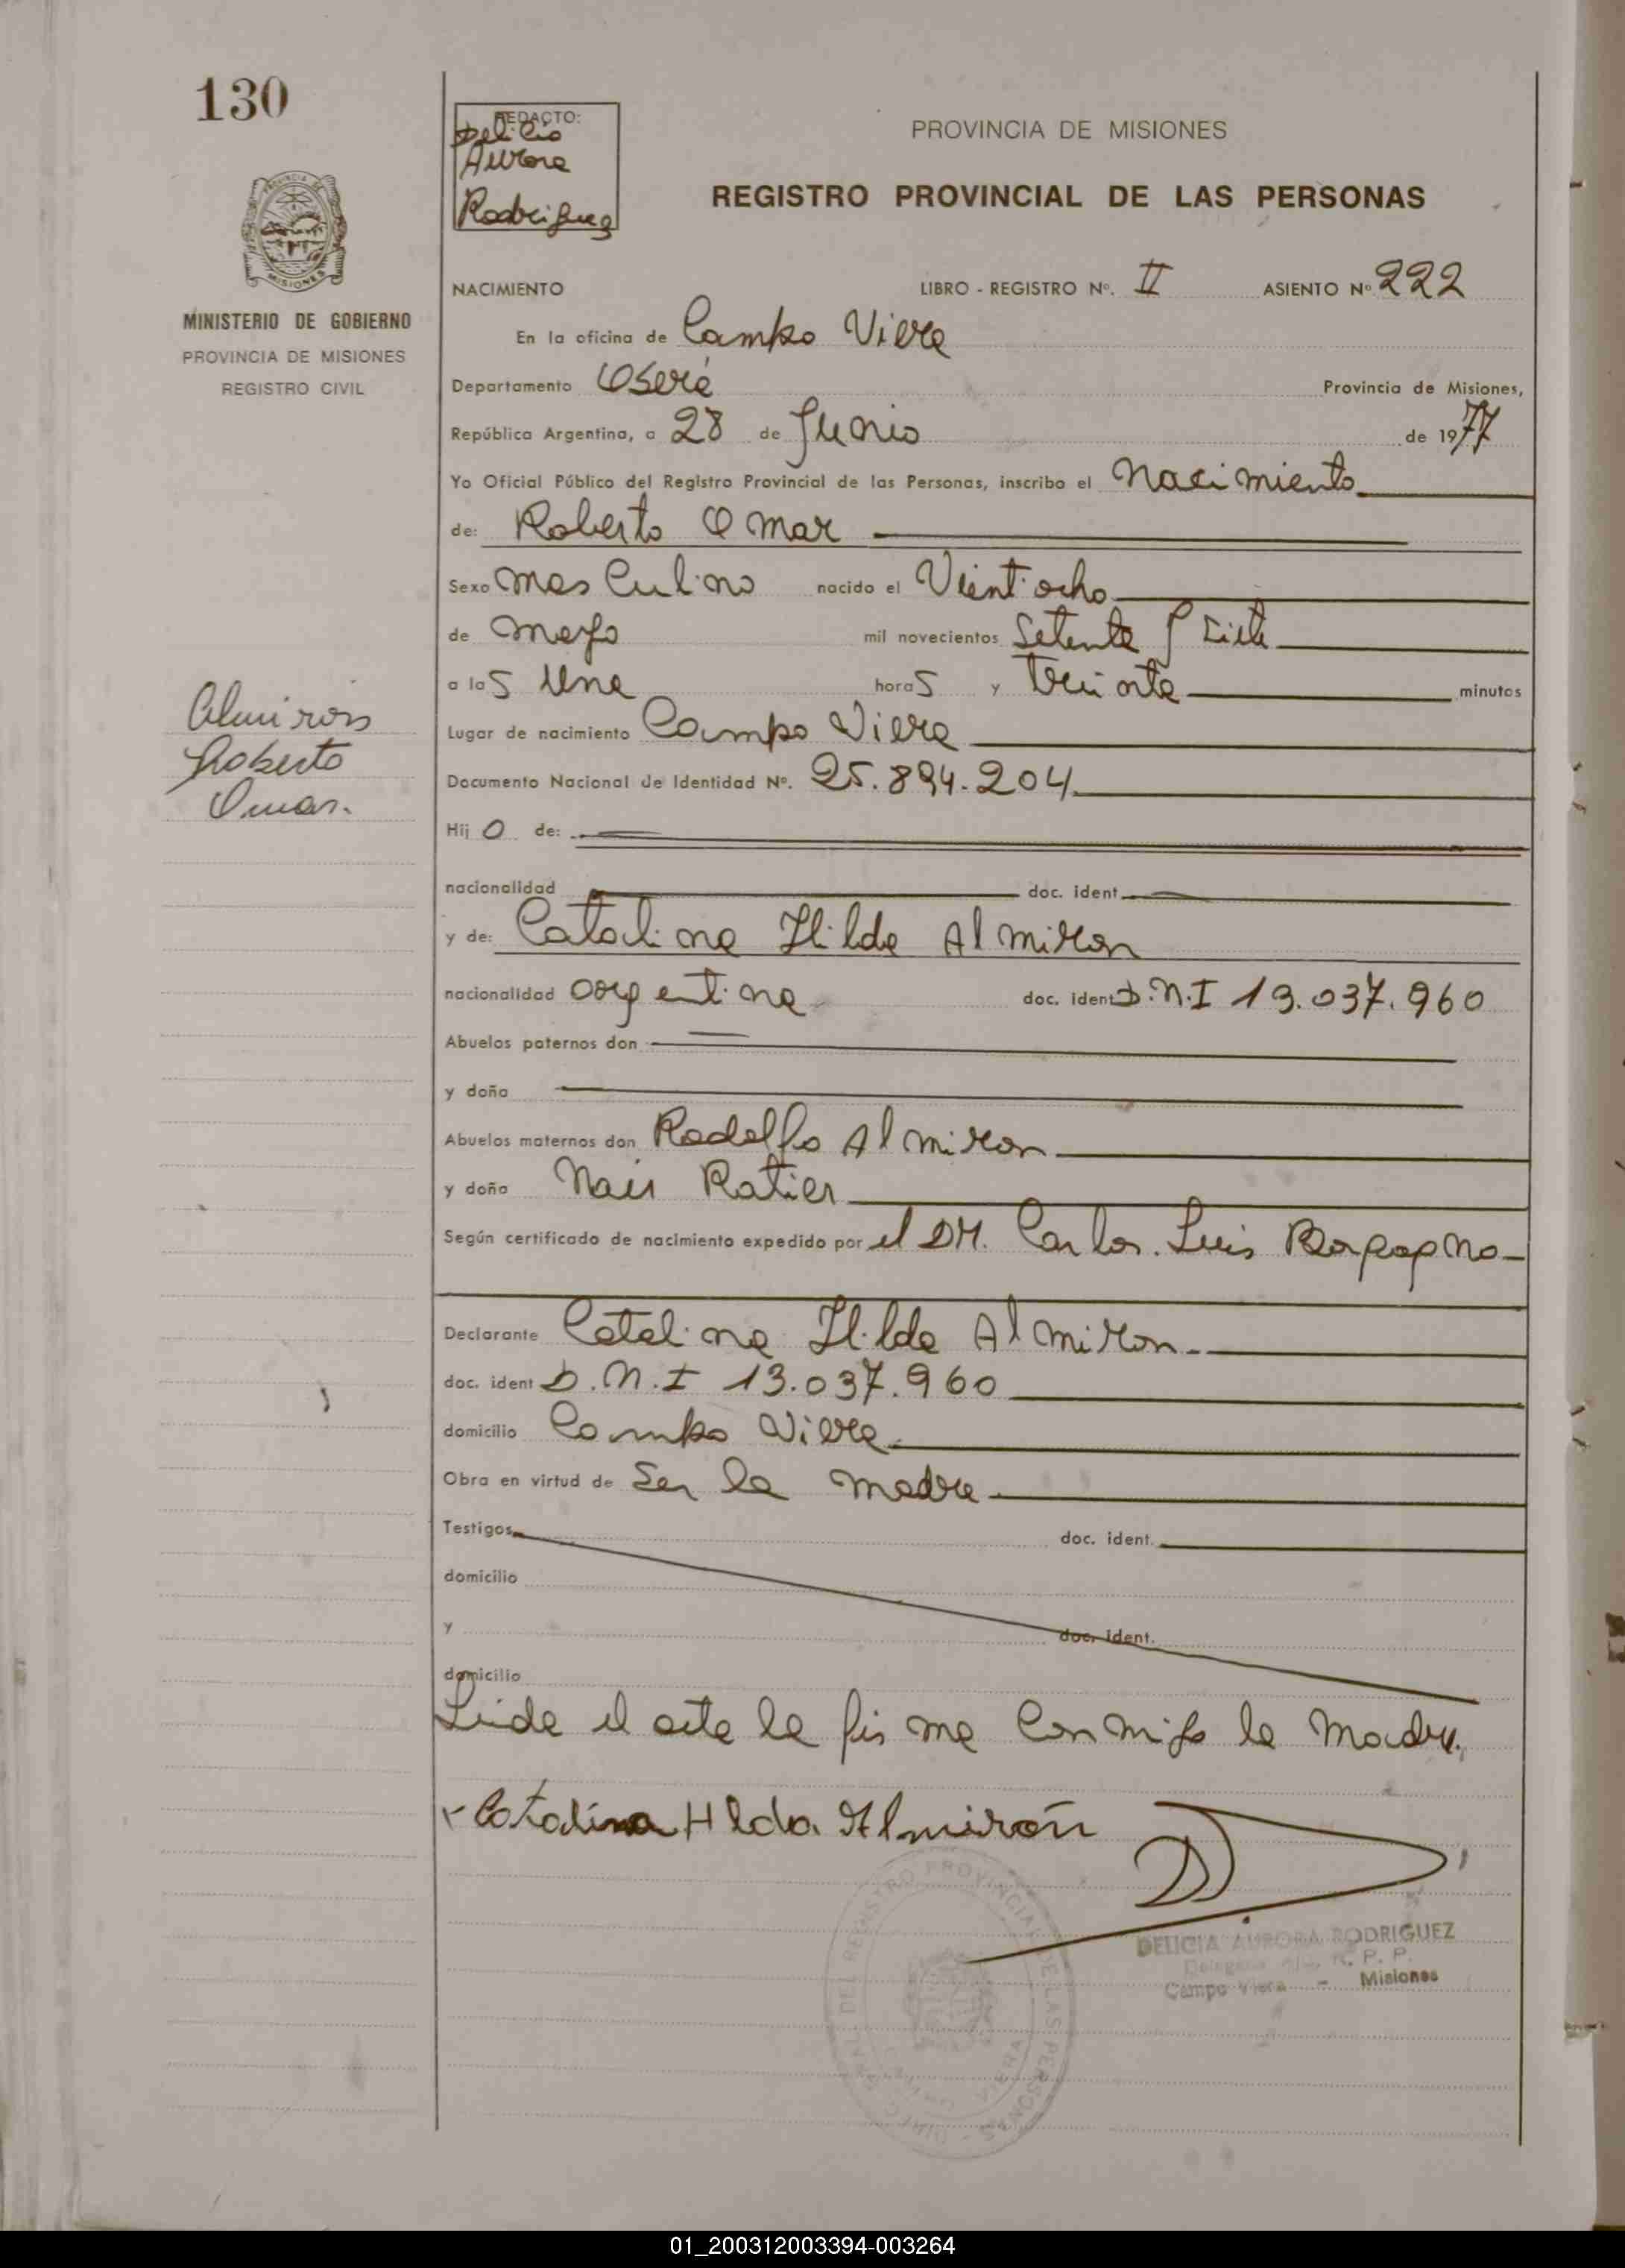 130
REDACTO:
Delicia
Aurora
Rodriguez
PROVINCIA DE MISIONES
REGISTRO PROVINCIAL DE LAS PERSONAS
MINISTERIO DE GOBIERNO
PROVINCIA DE MISIONES
REGISTRO CIVIL
NACIMIENTO LIBRO - REGISTRO Nº. II ASIENTO Nº 222
En la oficina de Campo Viera
Departamento Oberá Provincia de Misiones,
República Argentina, a 28 de Junio de 1977
Yo Oficial Público del Registro Provincial de las Personas, inscribo el Nacimiento
de: Roberto Omar
Sexo masculino nacido el Veintiocho
de mayo mil novecientos Setenta y Siete
a las Una horas y treinta minutos
Almiron
Roberto
Omar.
Lugar de nacimiento Campo Viera
Documento Nacional de Identidad Nº. 25.894.204
Hijo de:
nacionalidad doc. ident.
y de: Catalina Hilda Almiron
nacionalidad argentina doc. ident D.N.I 13.037.960
Abuelos paternos don
y doña
Abuelos maternos don Rodolfo Almiron
y doña Nair Ratier
Según certificado de nacimiento expedido por el DR. Carlos Luis
Declarante Catalina Hilda Almiron
doc. ident D.N.I 13.037.960
domicilio Campo Viera
Obra en virtud de Ser la madre
Testigos doc. ident.
domicilio
y doc. ident.
domicilio
Leida el acta la firma conmigo la Madre.
Catalina Hlda. Almirón
DELICIA AURORA RODRIGUEZ
R. P. P.
Campo Viera - Misiones
01_200312003394-003264